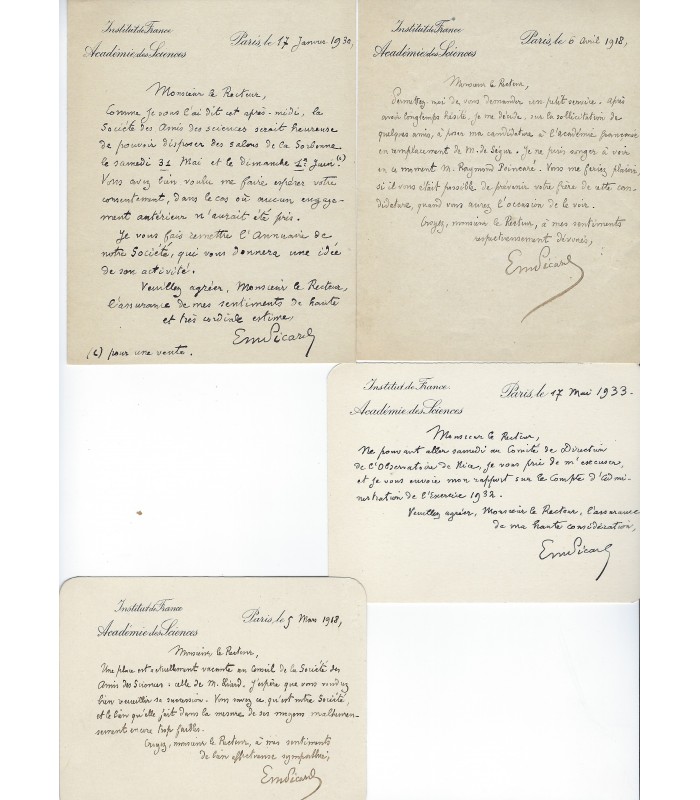 Institut de France
Académie des Sciences
Paris, le 17 Janvier 1930,
Monsieur le Recteur,
Comme je vous l'ai dit cet après-midi, la
Société des Amis des sciences serait heureuse
de pouvoir disposer des salons de la Sorbonne
le samedi 31 Mai et le dimanche 1er Juin (c)
Vous avez bien voulu me faire espérer votre
consentement, dans le cas où aucun engage-
ment antérieur n'aurait été pris.
Je vous fais remettre l'Annuaire de
notre Société, qui vous donnera une idée
de son activité.
Veuillez agréer, Monsieur le Recteur,
l'assurance de mes sentiments de haute
et très cordiale estime,
Em. Picard
(c) pour une vente.
Institut de France
Académie des Sciences
Paris, le 6 Avril 1918,
Monsieur le Recteur,
Permettez-moi de vous demander un petit service. Après
avoir longtemps hésité, je me décide, sur la sollicitation de
quelques amis, à poser ma candidature à l'académie française
en remplacement de M. de Ségur. Je ne puis songer à voir
en ce moment M. Raymond Poincaré. Vous me feriez plaisir,
si il vous était possible de prévenir votre frère de cette can-
didature, quand vous aurez l'occasion de le voir.
Croyez, monsieur le Recteur, à mes sentiments
respectueusement dévoués,
Em. Picard
Institut de France
Académie des Sciences
Paris, le 17 Mai 1933.
Monsieur le Recteur,
Ne pouvant aller samedi au Comité de Direction
de l'Observatoire de Nice, je vous prie de m'excuser,
et je vous envoie mon rapport sur le Compte d'Admi-
nistration de l'Exercice 1932.
Veuillez agréer, Monsieur le Recteur, l'assurance
de ma haute considération,
Em. Picard
Institut de France
Académie des Sciences
Paris, le 5 Mars 1918,
Monsieur le Recteur,
Une place est actuellement vacante au Conseil de la Société des
Amis des Sciences : celle de M. Liard. J'espère que vous voudrez
bien recueillir sa succession. Vous savez ce qu'est notre Société,
et le bien qu'elle fait dans la mesure de ses moyens malheureu-
sement encore trop faibles.
Croyez, monsieur le Recteur, à mes sentiments
de bien affectueuse sympathie,
Em. Picard